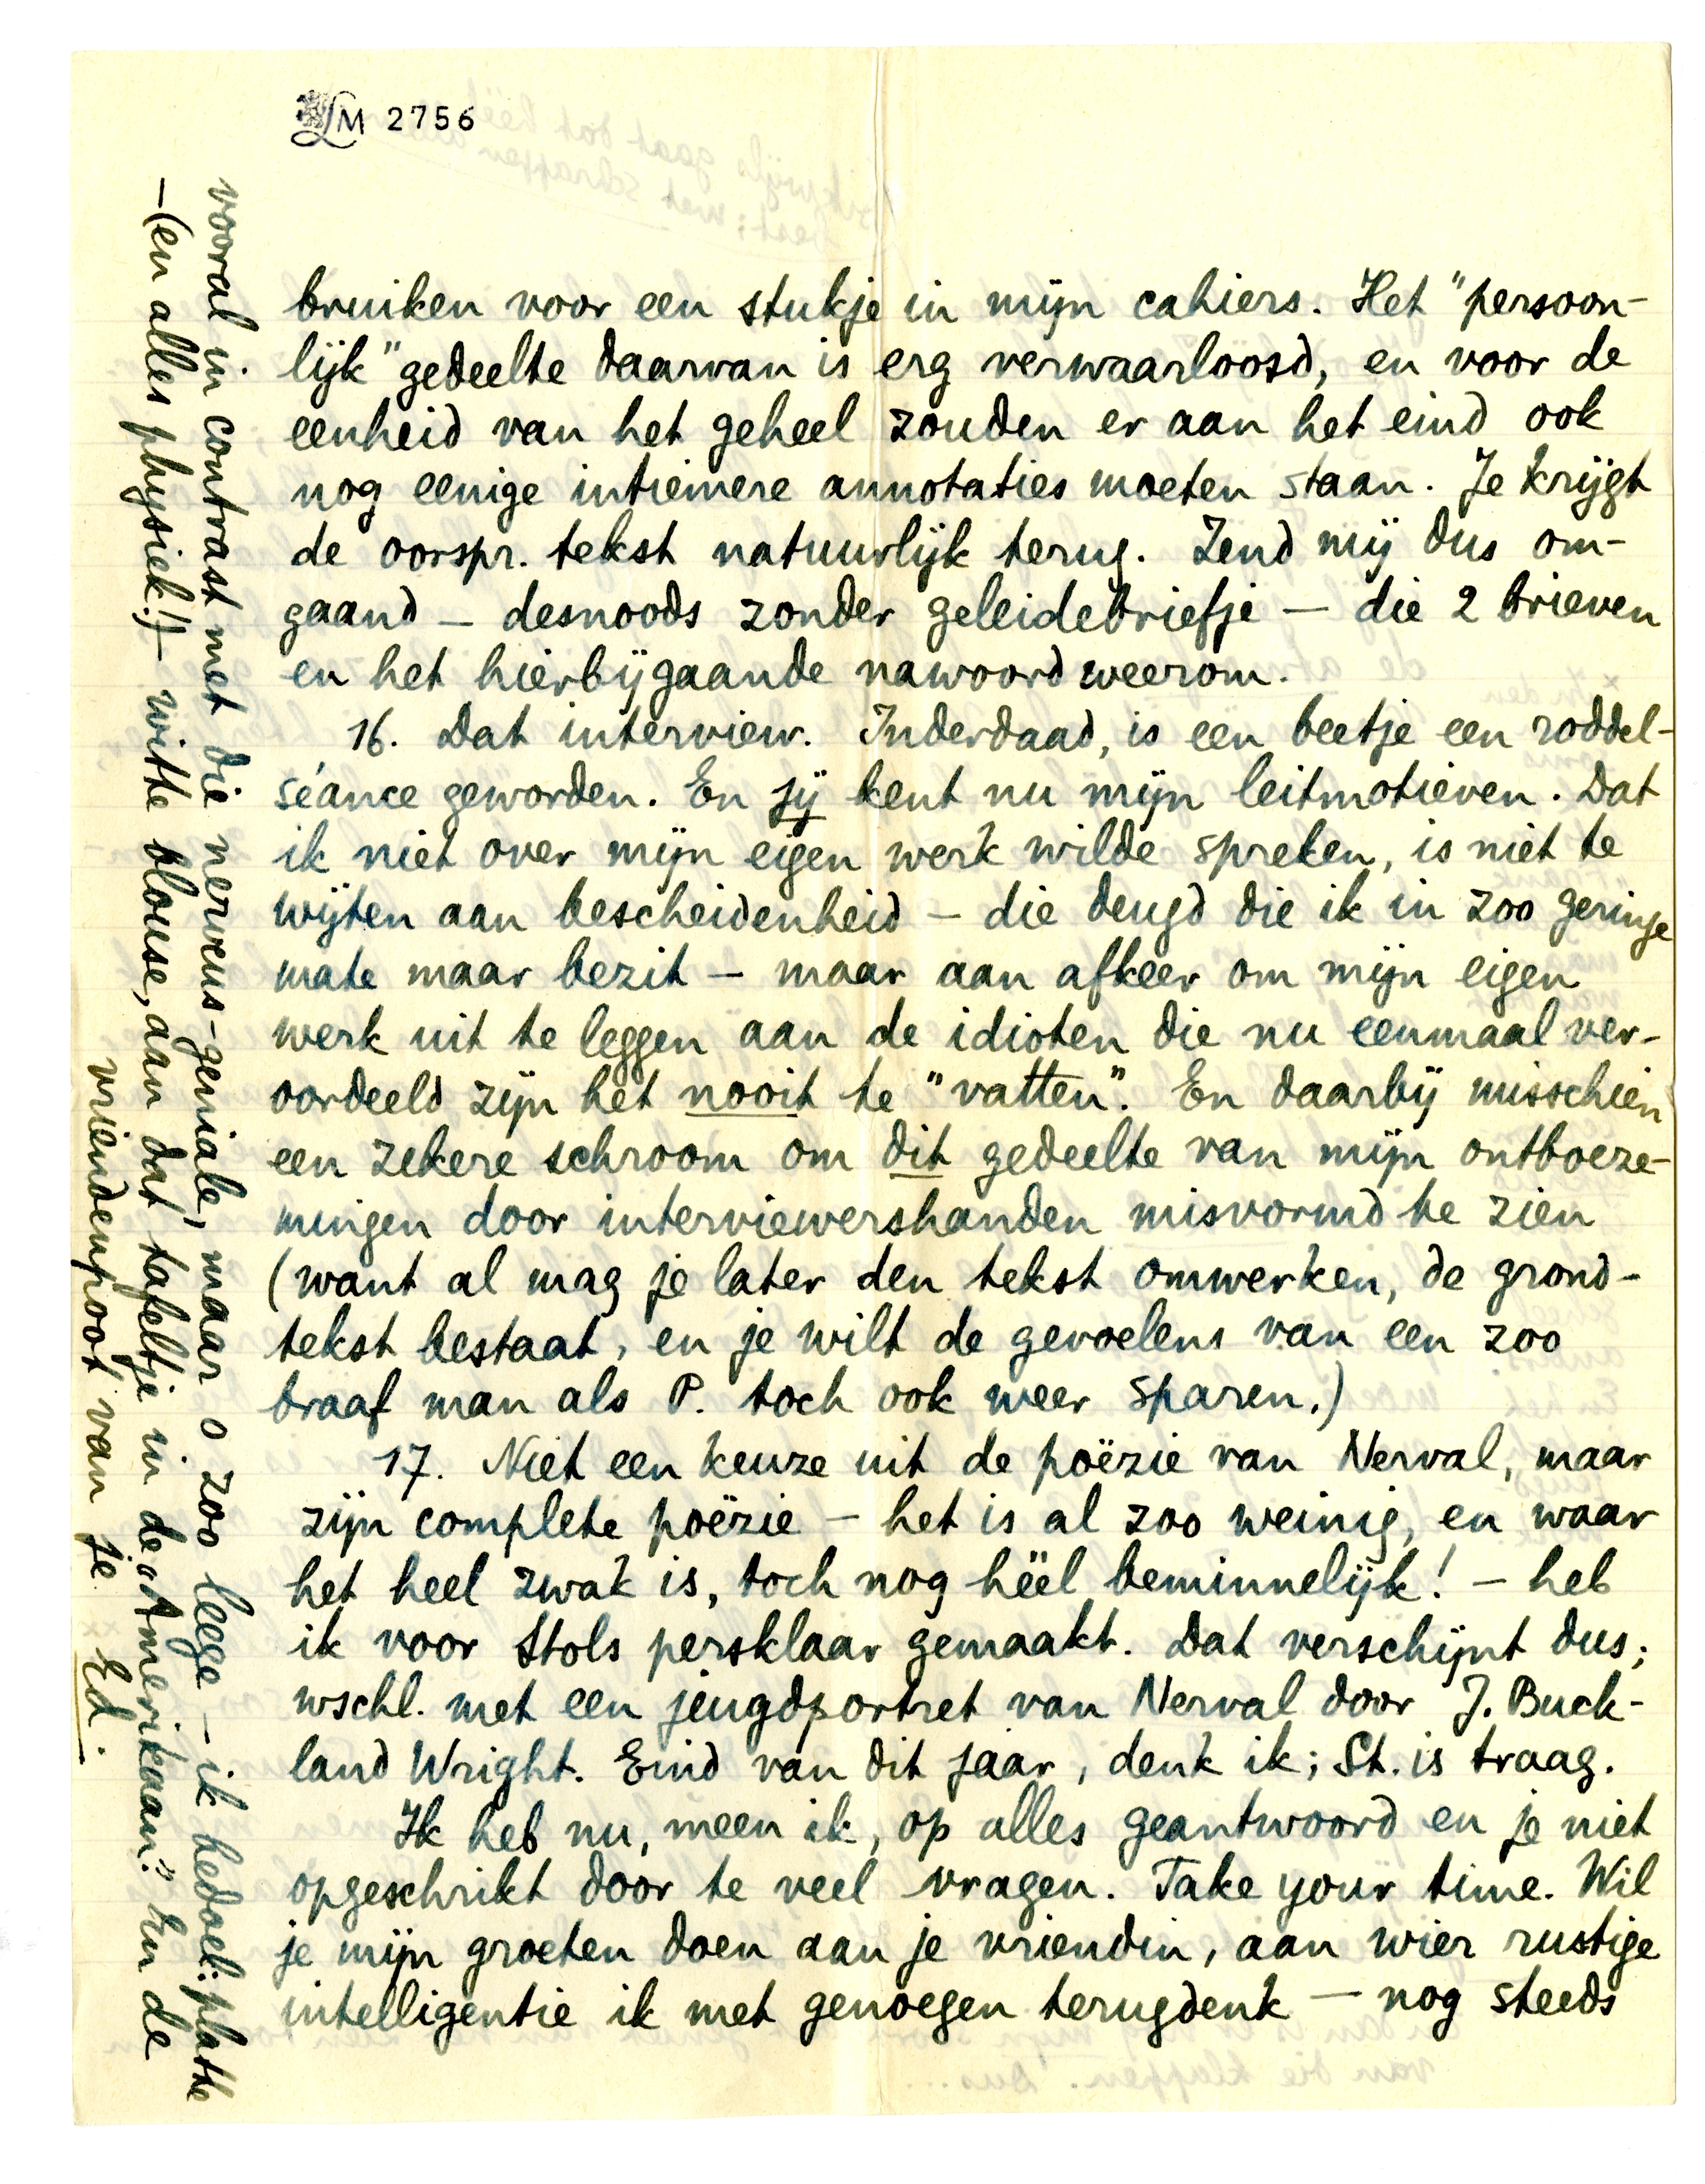 LM 2756
bruiken voor een stukje in mijn cahiers. Het "persoon-
lijk" gedeelte daarvan is erg verwaarloosd, en voor de
eenheid van het geheel zouden er aan het eind ook
nog eenige intiemere annotaties moeten staan. Je krijgt
de oorspr. tekst natuurlijk terug. Zend mij dus om-
gaand – desnoods zonder geleidebriefje – die 2 brieven
en het hierbijgaande nawoord weerom.
16. Dat interview. Inderdaad, is een beetje een roddel-
séance geworden. En jij kent nu mijn leitmotieven. Dat
ik niet over mijn eigen werk wilde spreken, is niet te
wijten aan bescheidenheid – die deugd die ik in zoo geringe
mate maar bezit – maar aan afkeer om mijn eigen
werk uit te leggen aan de idioten die nu eenmaal ver-
oordeeld zijn het nooit te "vatten". En daarbij misschien
een zekere schroom om dit gedeelte van mijn ontboeze-
mingen door interviewershanden misvormd te zien
(want al mag je later den tekst omwerken, de grond-
tekst bestaat, en je wilt de gevoelens van een zoo
braaf man als P. toch ook weer sparen.)
17. Niet een keuze uit de poëzie van Nerval, maar
zijn complete poëzie – het is al zoo weinig, en waar
het heel zwak is, toch nog héél beminnelijk! – heb
ik voor Stols persklaar gemaakt. Dat verschijnt dus;
wschl. met een jeugdportret van Nerval door J. Buck-
land Wright. Eind van dit jaar, denk ik; St. is traag.
Ik heb nu, meen ik, op alles geantwoord en je niet
opgeschrikt door te veel vragen. Take your time. Wil
je mijn groeten doen aan je vriendin, aan wier rustige
intelligentie ik met genoegen terugdenk – nog steeds
vooral in contrast met die nerveus-geniale, maar o zoo leege – ik bedoel: platte
– (en alles physiek!) – witte blouse, aan dat tafeltje in de "Amerikaan." En de
vriendenpoot van je Ed.